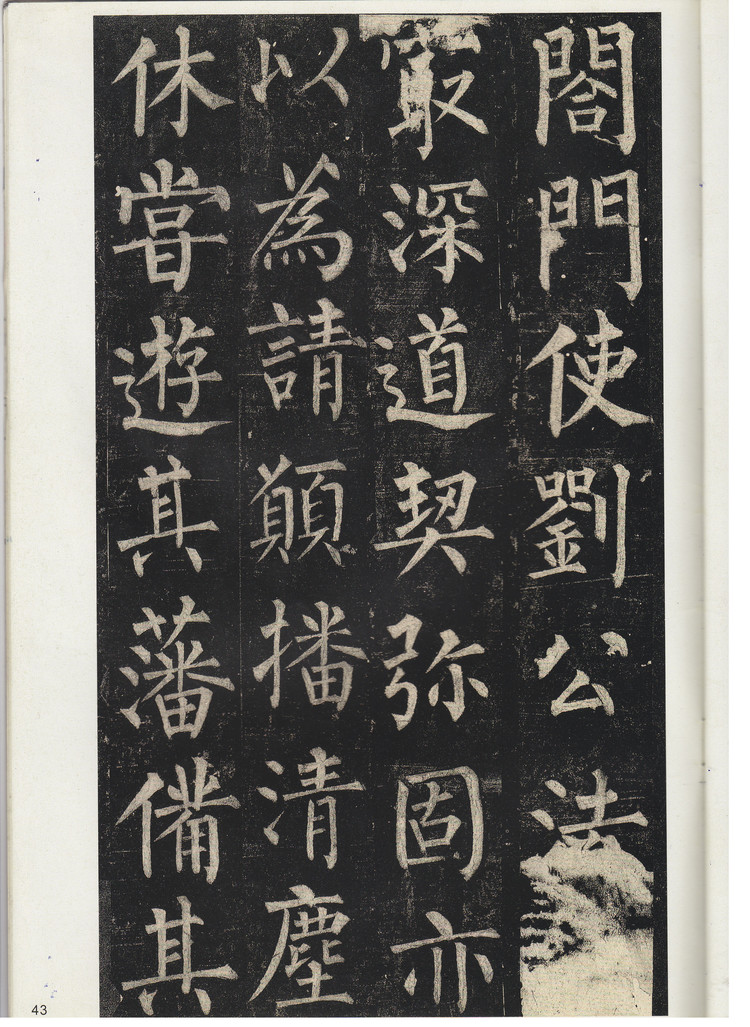 閤門使劉公法
㝡深道契弥固亦
以為請願播清塵
休嘗遊其藩備其
43